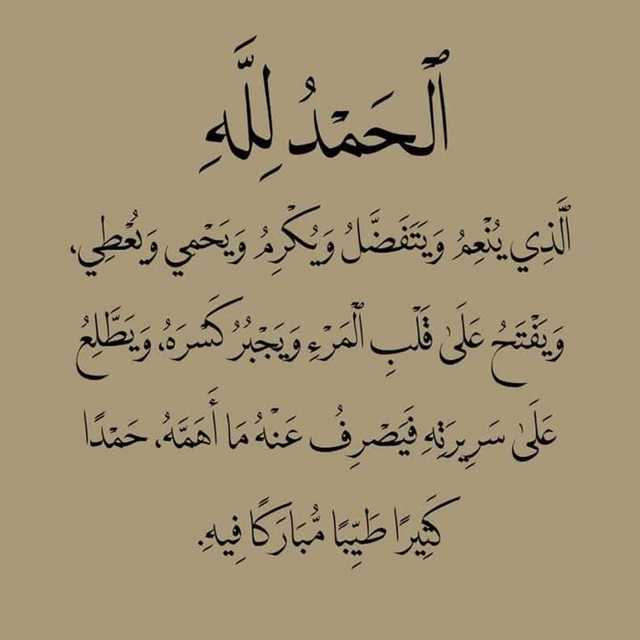 ٱلْحَمْدُ لِلَّهِ
ٱلَّذِي يُنْعِمُ وَيَتَفَضَّلُ وَيُكْرِمُ وَيَحْمِي وَيُعْطِي،
وَيَفْتَحُ عَلَىٰ قَلْبِ ٱلْمَرْءِ وَيَجْبُرُ كَسْرَهُ، وَيَطَّلِعُ
عَلَىٰ سَرِيرَتِهِ فَيَصْرِفُ عَنْهُ مَا أَهَمَّهُ، حَمْدًا
كَثِيرًا طَيِّبًا مُّبَارَكًا فِيهِ.